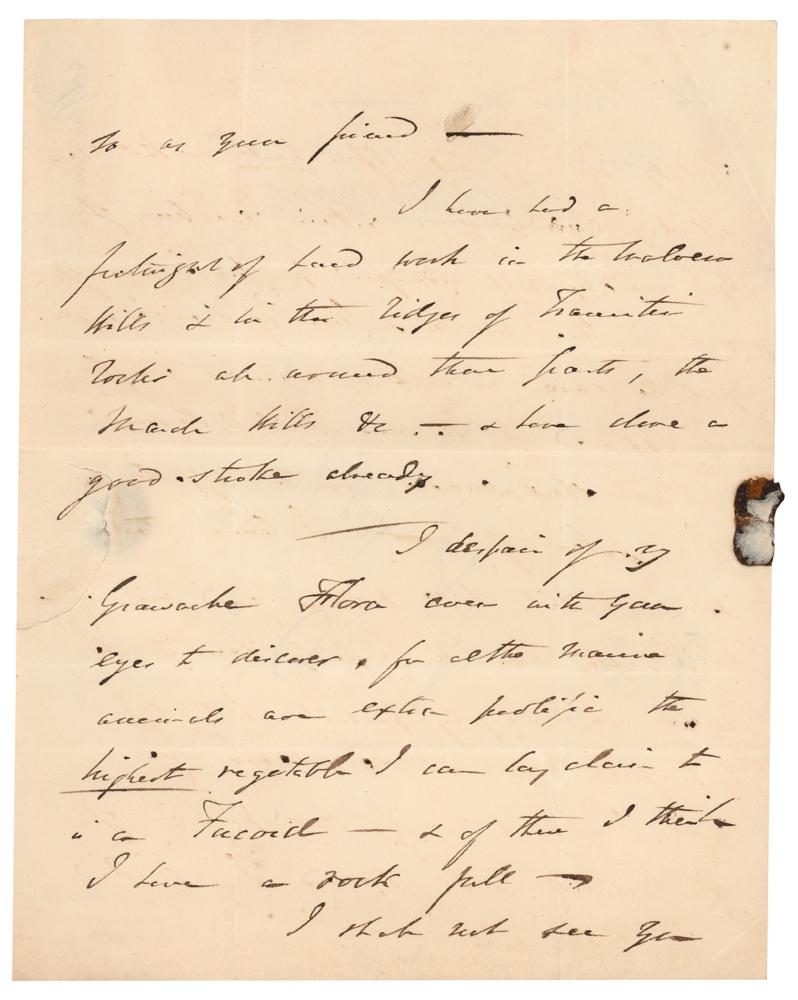 to as your friend —
I have had a
fortnight of hard work in the Malvern
Hills & in the ridges of Transition
Rocks all around these parts, the
Hills &c — & have done a
good stroke already.
I despair of my
Grawacke Flora even with your
eyes to discover, for altho marine
animals are extra prolific the
highest vegetable I can lay claim to
is a Fucoid — & of these I think
I have a rock full —
I shall not see you